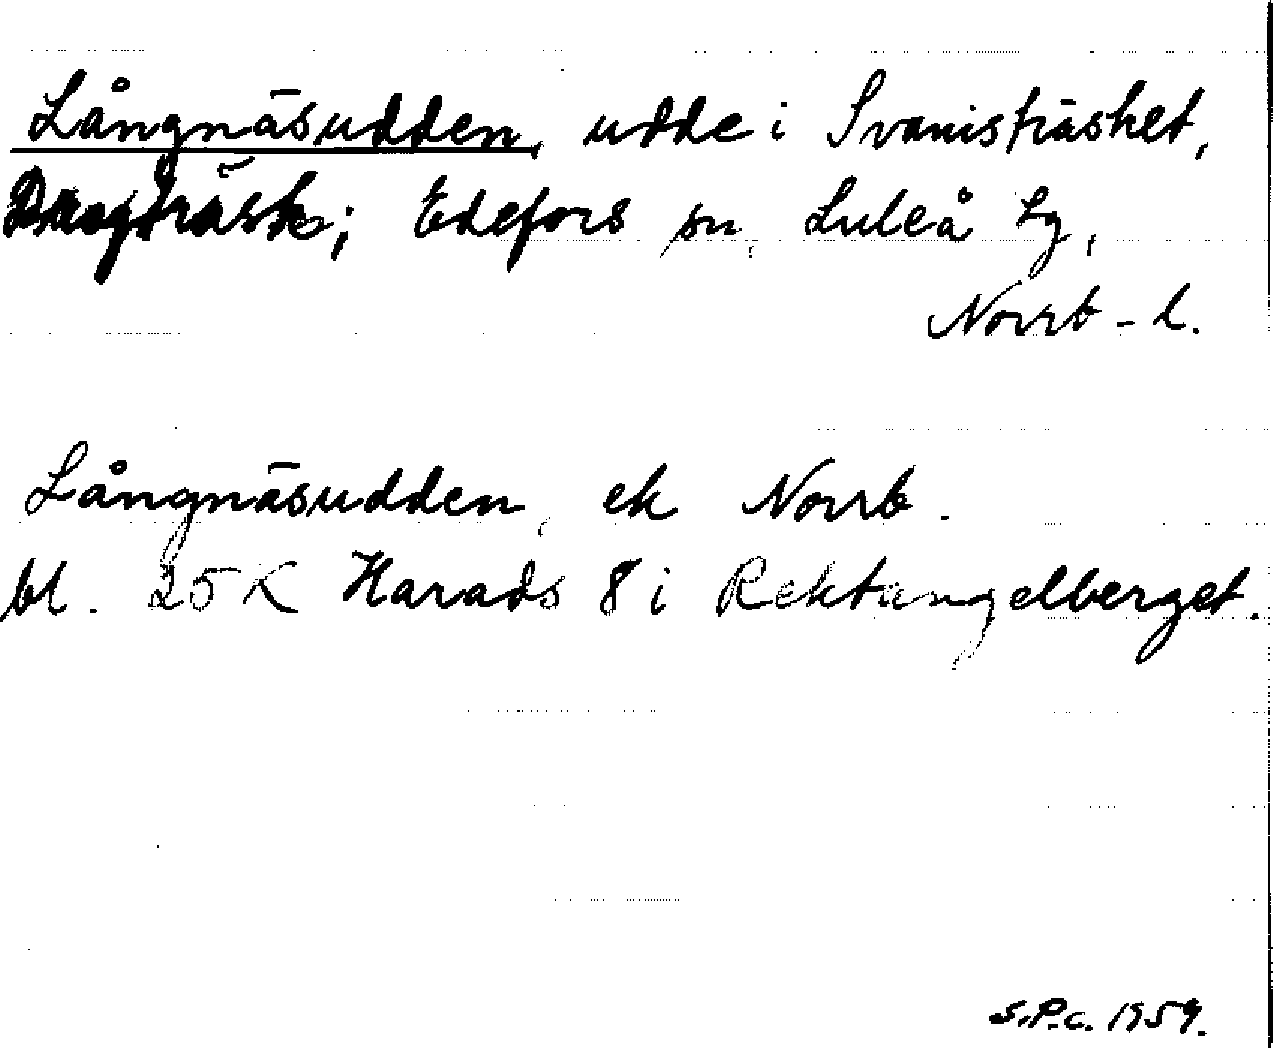 Långnäsudden, udde i Svanisträsket,
; Edefors sn, Luleå tg,
Norrb-l.
Långnäsudden, ek Norrb.
bl. 25K Harads 8 i Rektangelberget.
S.P.c. 1959.